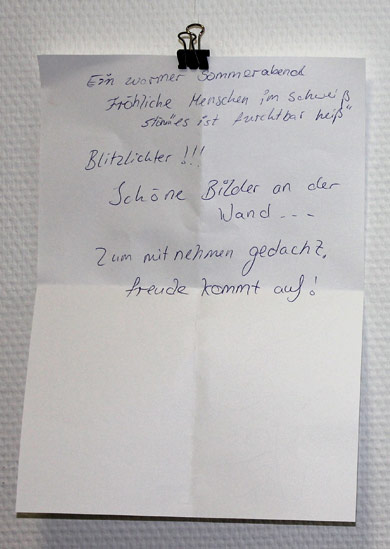 Ein warmer Sommerabend
Fröhliche Menschen im Schweiß
es ist furchtbar heiß"
Blitzlichter !!!
Schöne Bilder an der
Wand ---
Zum mitnehmen gedacht,
freude kommt auf!